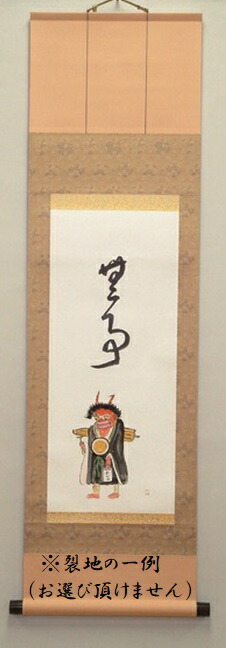 無事
※裂地の一例
(お選び頂けません)